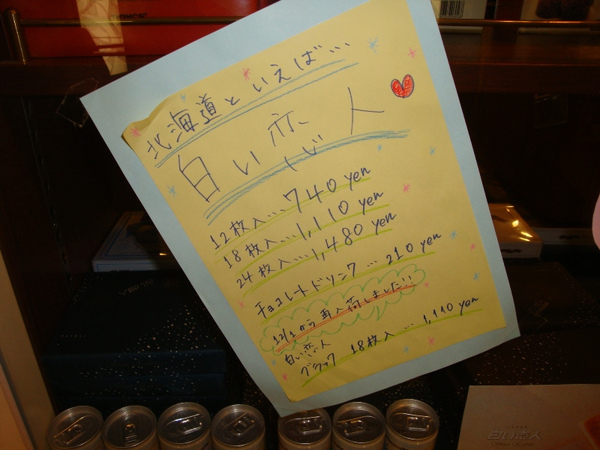 北海道といえば…
白い恋人
12枚入…740yen
18枚入…1,110yen
24枚入…1,480yen
チョコレートドリンク…210yen
12/1から再入荷しました!!
白い恋人
ブラック 18枚入…1,110yen
白い恋人